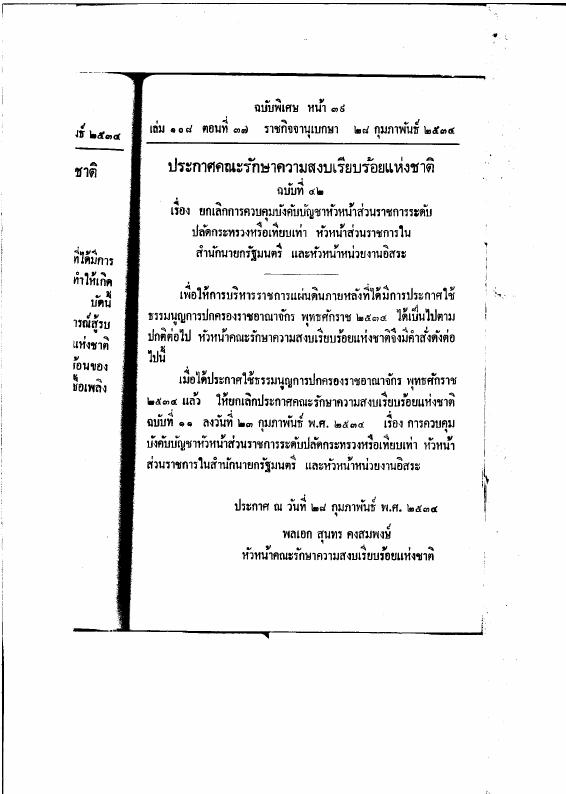 งธ์ ๒๕๓๔
ชาติ
ที่ได้มีการ
ทำให้เกิด
บัดนี้
ารณ์สู้รบ
แห่งชาติ
ร้อนของ
ชื้อเพลิง
ฉบับพิเศษ หน้า ๓๙
เล่ม ๑๐๘ ตอนที่ ๓๗ ราชกิจจานุเบกษา ๒๘ กุมภาพันธ์ ๒๕๓๔
ประกาศคณะรักษาความสงบเรียบร้อยแห่งชาติ
ฉบับที่ ๔๒
เรื่อง ยกเลิกการควบคุมบังคับบัญชาหัวหน้าส่วนราชการระดับ
ปลัดกระทรวงหรือเทียบเท่า หัวหน้าส่วนราชการใน
สำนักนายกรัฐมนตรี และหัวหน้าหน่วยงานอิสระ
เพื่อให้การบริหารราชการแผ่นดินภายหลังที่ได้มีการประกาศใช้
ธรรมนูญการปกครองราชอาณาจักร พุทธศักราช ๒๕๓๔ ได้เป็นไปตาม
ปกติต่อไป หัวหน้าคณะรักษาความสงบเรียบร้อยแห่งชาติจึงมีคำสั่งดังต่อ
ไปนี้
เมื่อได้ประกาศใช้ธรรมนูญการปกครองราชอาณาจักร พุทธศักราช
๒๕๓๔ แล้ว ให้ยกเลิกประกาศคณะรักษาความสงบเรียบร้อยแห่งชาติ
ฉบับที่ ๑๑ ลงวันที่ ๒๓ กุมภาพันธ์ พ.ศ. ๒๕๓๔ เรื่อง การควบคุม
บังคับบัญชาหัวหน้าส่วนราชการระดับปลัดกระทรวงหรือเทียบเท่า หัวหน้า
ส่วนราชการในสำนักนายกรัฐมนตรี และหัวหน้าหน่วยงานอิสระ
ประกาศ ณ วันที่ ๒๘ กุมภาพันธ์ พ.ศ. ๒๕๓๔
พลเอก สุนทร คงสมพงษ์
หัวหน้าคณะรักษาความสงบเรียบร้อยแห่งชาติ